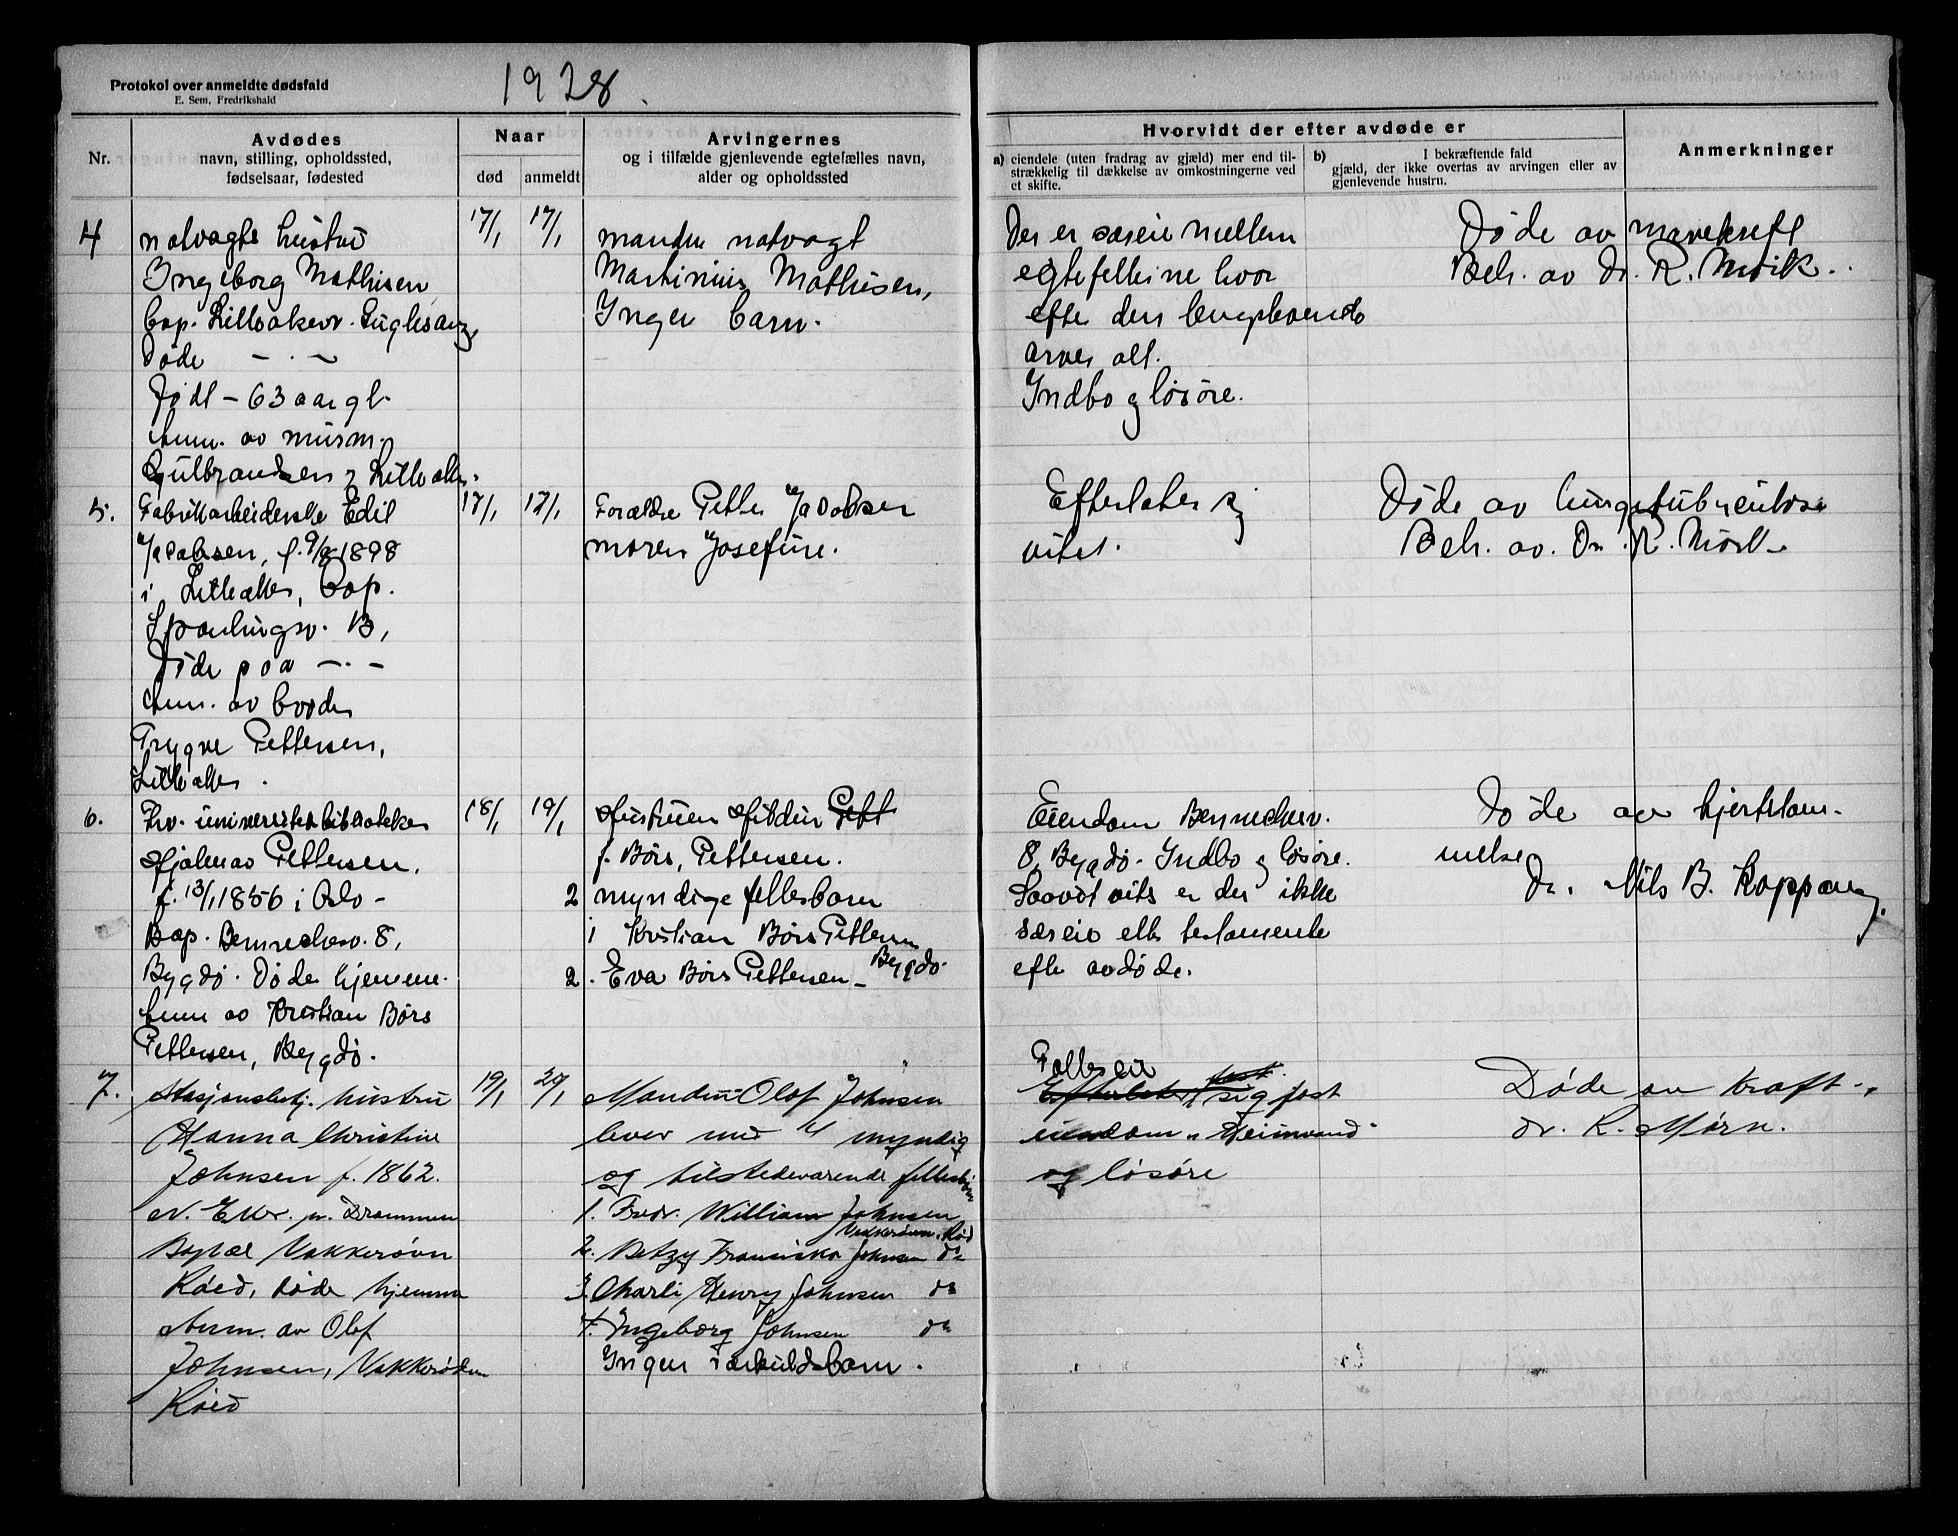 Protokol over anmeldte dødsfald
E. Sem, Fredrikshald
1928.
Nr.
Avdødes
navn, stilling, opholdssted,
fødselsaar, fødested
Naar
død
anmeldt
Arvingernes
og i tilfælde gjenlevende egtefælles navn,
alder og opholdssted
Hvorvidt der efter avdøde er
a) eiendele (uten fradrag av gjæld) mer end til-
strækkelig til dækkelse av omkostningerne ved
et skifte.
b) I bekræftende fald
gjæld, der ikke overtas av arvingen eller av
gjenlevende hustru.
Anmerkninger
4
natvagts hustru
Ingeborg Mathisen
bop. Lilleakerv.
Døde — . —
Født — 63 aar gl.
Anm. av murm.
Gulbrandsen, Lilleaker.
17/1
17/1
manden natvagt
Martinius Mathisen,
Ingen barn.
Der er særeie mellem
egtefellerne hvor
efter den lengstlevende
arver alt.
Indbo og løsøre.
Døde av mavekreft
Beh. av Dr. R. Mørk.
5.
Fabrikarbeiderske Edil
Jacobsen, f. 9/8 1898
i Lilleaker, Bop.
13,
Døde paa — . —
Anm. av broder
Trygve Pettersen,
Lilleaker.
17/1
17/1
Forældre Petter Jacobsen
moren Josefine.
Efterlater sig
intet.
Døde av lungetuberkulose
Beh. av. Dr. R. Mørk
6.
Fhv. universitetsbibliotekar
Hjalmar Pettersen,
f. 13/1 1856 i Oslo -
Bop. Bennechesv. 8,
Bygdø. Døde hjemme.
Anm av Kristian Børs
Pettersen, Bygdø.
18/1
19/1
Hustruen Hildur Pett
f. Børs, Pettersen.
2 myndige fellesbarn
1 Kristian Børs Pettersen
2. Eva Børs Pettersen — Bygdø.
Eiendom Bennechesv.
8, Bygdø. Indbo og løsøre.
Saavidt vites er der ikke
særeie eller testamente
efter avdøde.
Døde av hjertelam-
melse
Dr. Nils B. Koppang.
7.
Stasjonsbetj. hustru
Hanna Christine
Johnsen f. 1862.
N. Eker. pr. Drammen
Bopæl Vækkerøvn
Røed, døde hjemme
Anm. av Olof
Johnsen, Vækkerøvn
Røed
19/1
20/1
Manden Olof Johnsen
lever med 4 myndig
og tilstedeværende fellesbørn
1. Fredr. William Johnsen
Vækkerøvn. Røed
2. Betzy Fransiska Johnsen do
3. Charli Henry Johnsen do
4. Ingeborg Johnsen do
Ingen særkuldsbarn.
Felleseie
Efterlater sig fast
eiendom "Heimvand"
og løsøre
Døde av Kræft.
dr. R. Mørn.